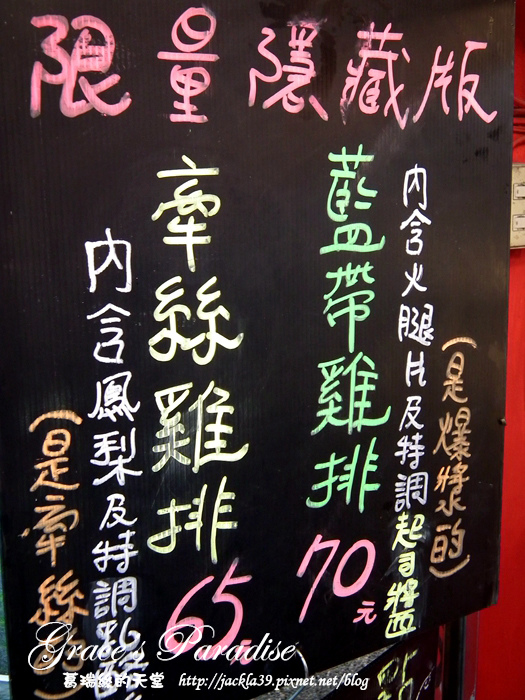 限量隱藏版
(是爆漿的)
內含火腿片及特調起司醬
藍帶雞排
70元
牽絲雞排
65元
內含鳳梨及特調乳酪
(是牽絲的)
Grace's Paradise
葛瑞絲的天堂 http://jackla39.pixnet.net/blog